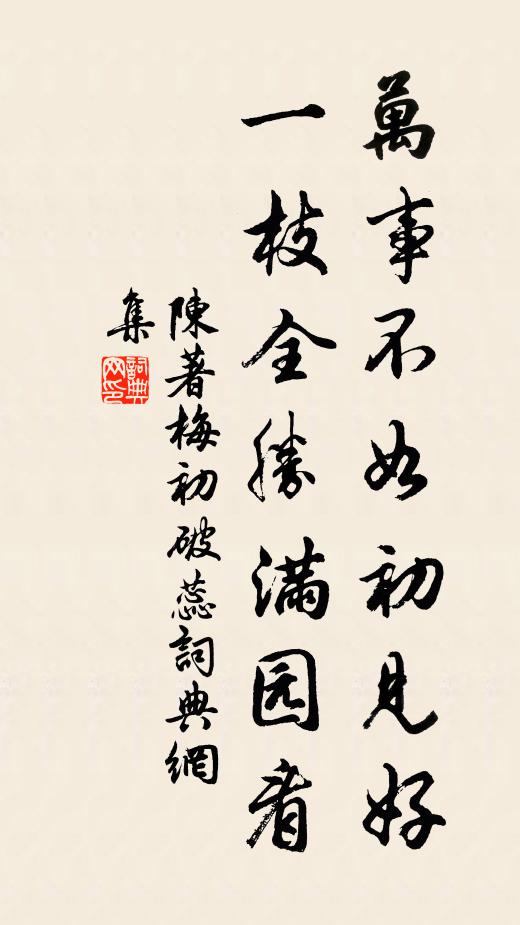 萬事不如初見好
一枝全勝満园看
陳著梅初破蕊詞典網
集
詞典
网印